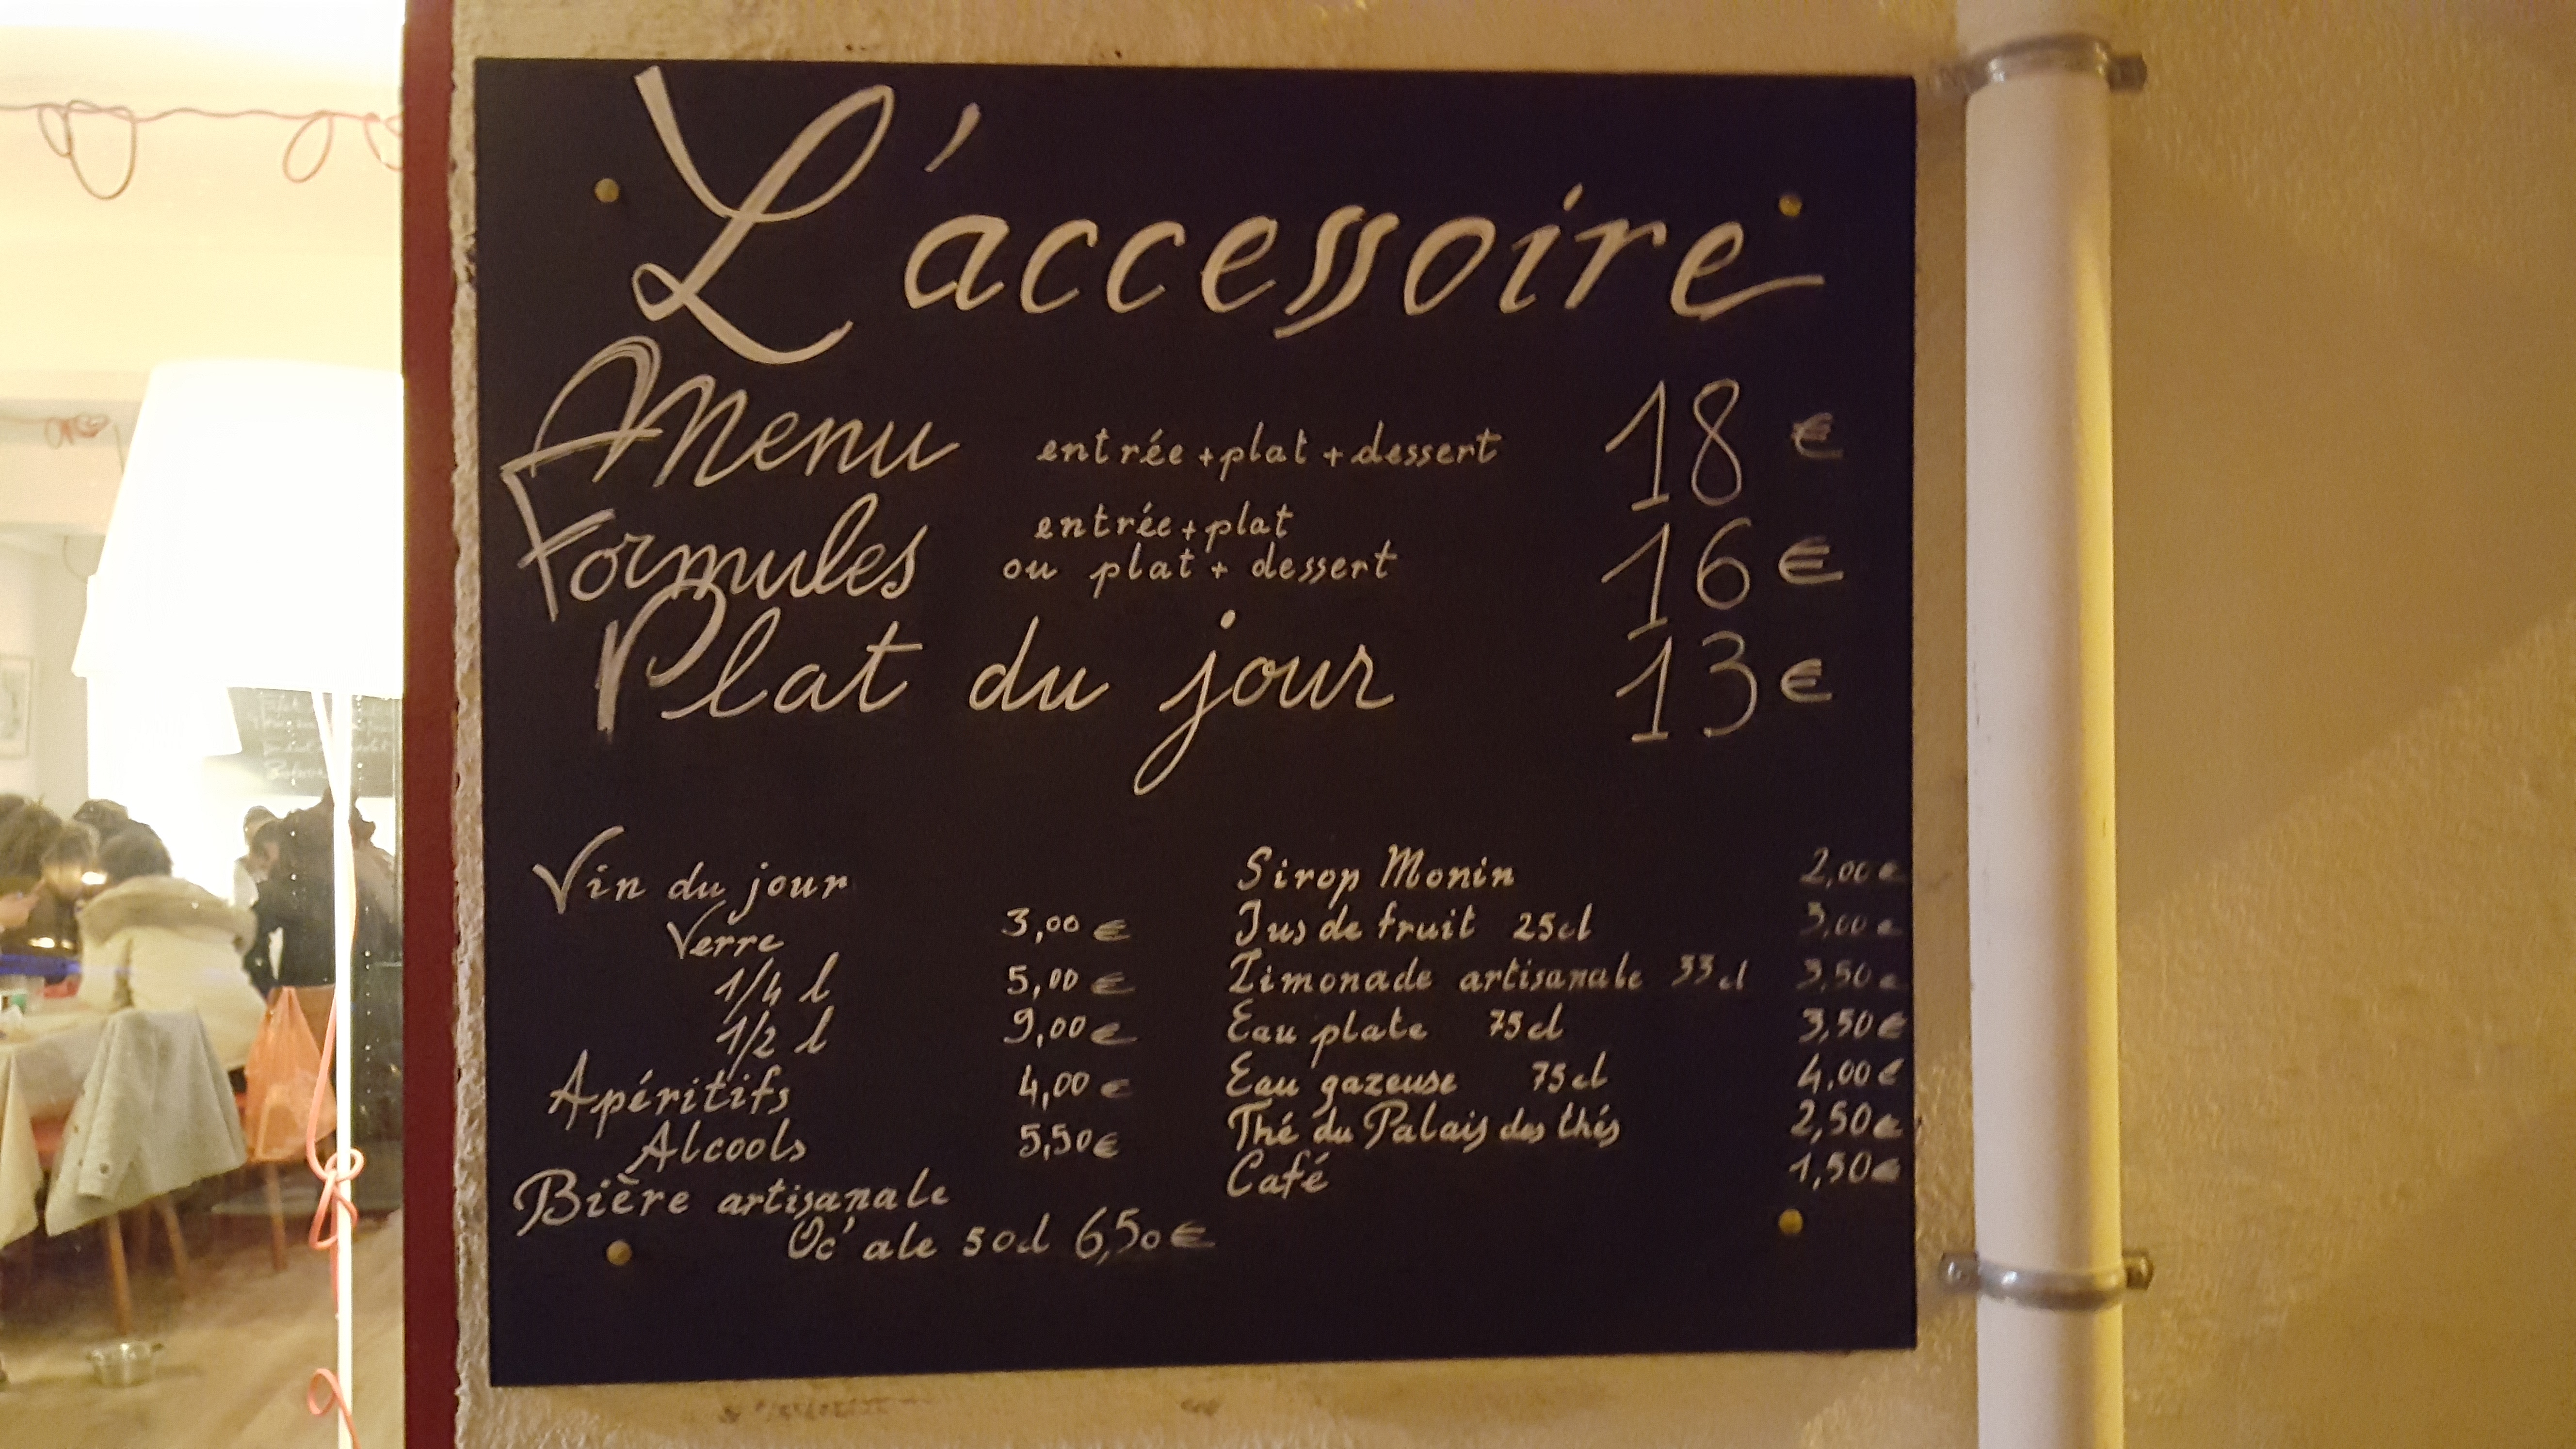 L'accessoire
Menu entrée + plat + dessert 18 €
Formules entrée + plat
ou plat + dessert 16 €
Plat du jour 13 €
Vin du jour
Verre 3,00 €
1/4 l 5,00 €
1/2 l 9,00 €
Apéritifs 4,00 €
Alcools 5,50 €
Bière artisanale
Oc'ale 50cl 6,50 €
Sirop Monin 2,00 €
Jus de fruit 25cl 3,00 €
Limonade artisanale 33cl 3,50 €
Eau plate 75cl 3,50 €
Eau gazeuse 75cl 4,00 €
Thé du Palais des thés 2,50 €
Café 1,50 €